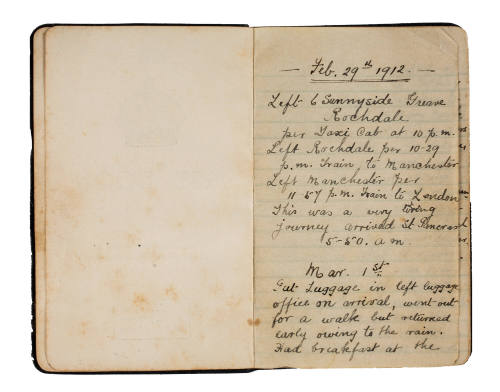 — Feb. 29th 1912. —
Left 6 Sunnyside Greave
Rochdale
per Taxi Cab at 10 p.m.
Left Rochdale per 10-29
p.m. Train, to Manchester
Left Manchester per
11-57 p.m. Train to London
This was a very tiring
journey arrived St Pancras
5-50. a.m.
Mar. 1st
Put Luggage in left luggage
office on arrival, went out
for a walk but returned
early owing to the rain.
Had breakfast at the